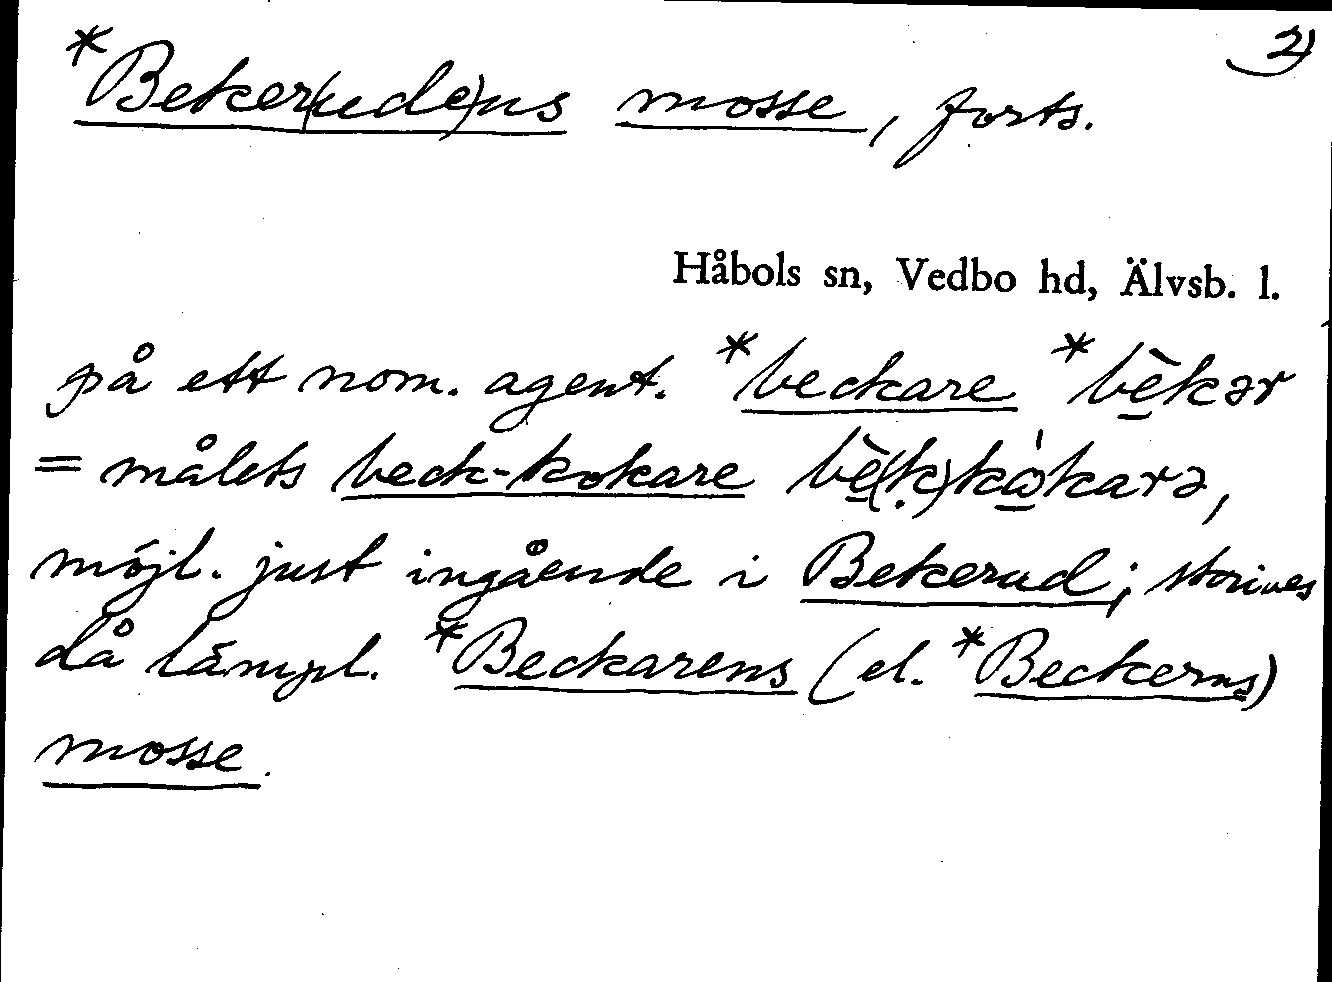 2)
*Beker(ude)ns mosse, forts.
Håbols sn, Vedbo hd, Älvsb. l.
på ett nom. agent. *beckare *bèkər
= målets beck-kokare bè(k)kòkarə,
möjl. just ingående i Bekerud; skrives
då lämpl. *Beckarens (el. *Beckerns)
mosse.